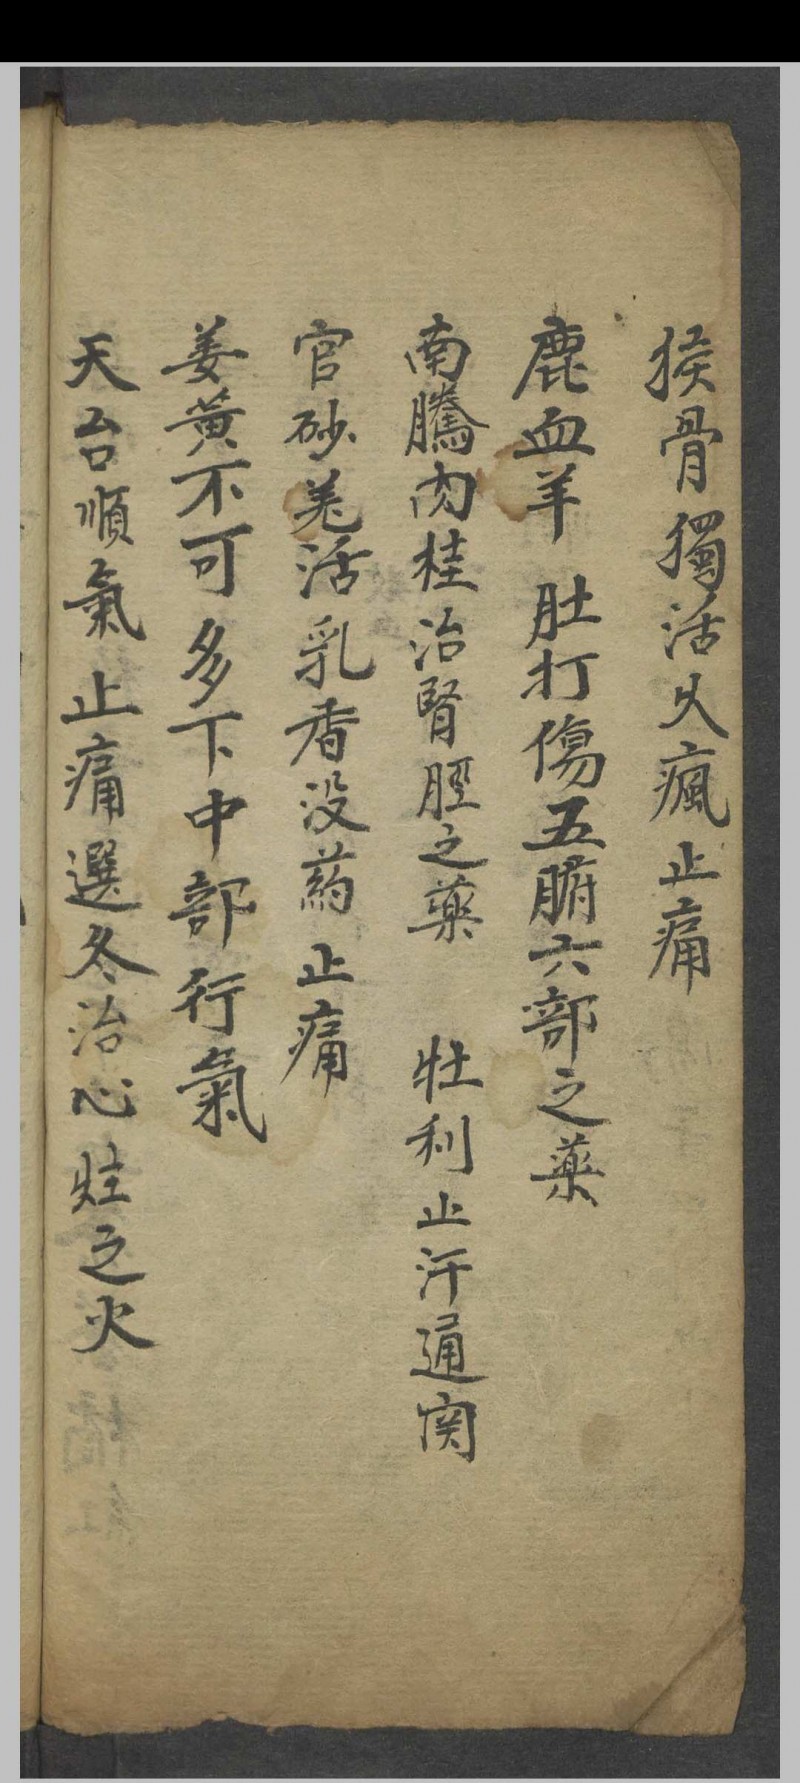 猴骨獨活火瘋止痛
鹿血羊 肚打傷五腑六部之藥
南騰肉桂治腎脛之藥 牡利止汗通関
官砂羗活乳香没药止痛
姜黄不可多下中部行氣
天台順氣止痛選冬治心炷之火